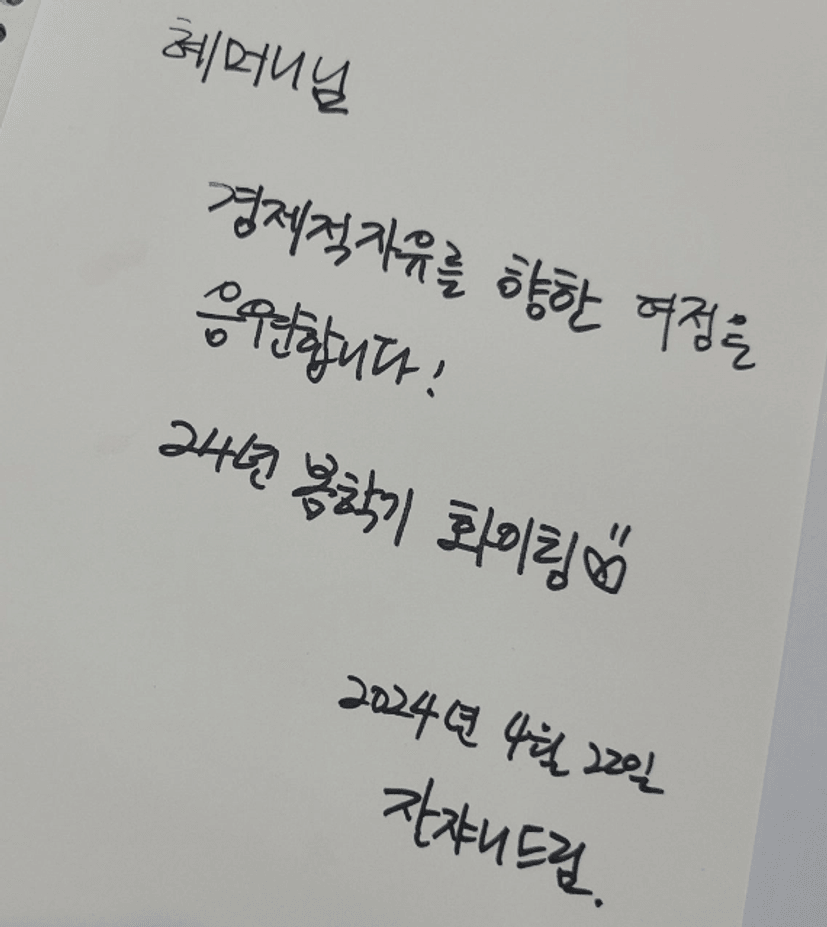 혜머니님
경제적자유를 향한 여정을
응원합니다!
24년 봄학기 화이팅
2024년 4월 22일
잔쟈니드림.